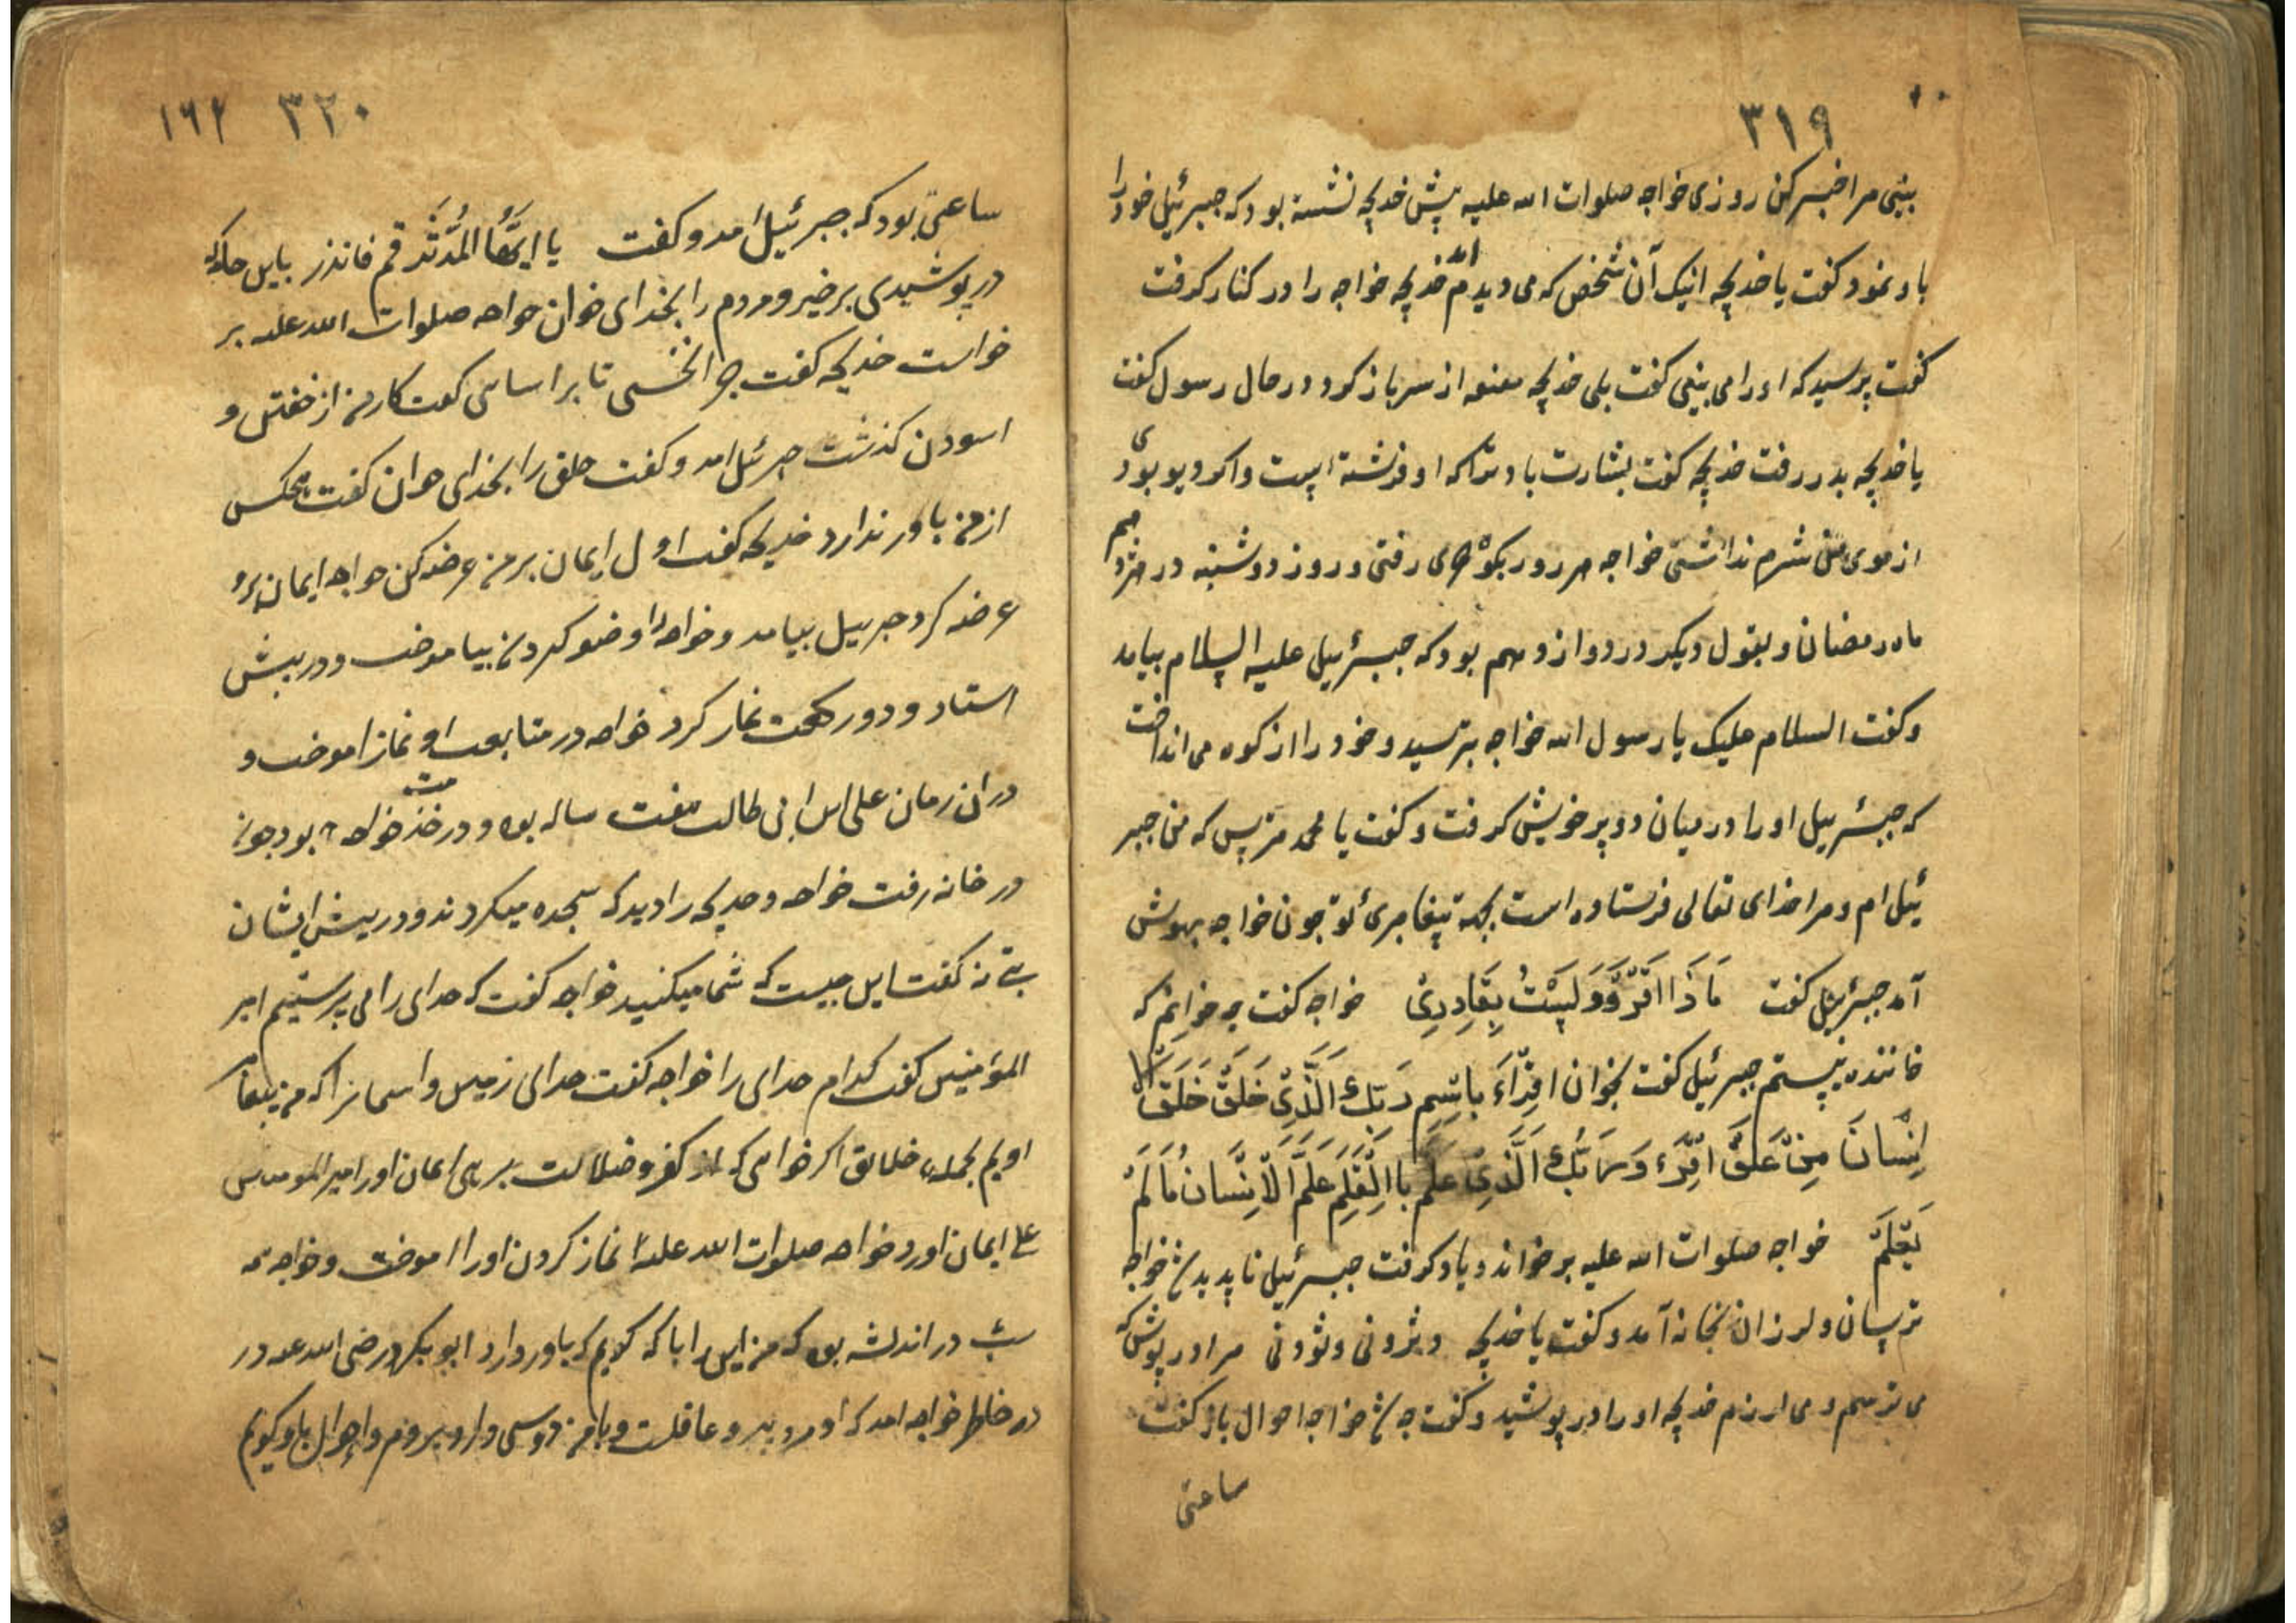 ٣١٩
بینی مرا خبر کن روزی خواجه صلوات الله علیه پیش خدیجه نشسته بود که جبرئیل خود را
باو نمود کفت یا خدیجه اینک آن شخص که می دیدم آمد خدیجه خواجه را در کنار کرفت
کفت پرسید که اورا می بینی کفت بلی خدیجه مقنعه از سر باز کرد در حال رسول کفت
یا خدیجه بدر رفت خدیجه کفت بشارت باد ترا که او فرشته است واکر دیو بودی
از موی من شرم نداشتی خواجه هر روز بکوه حری رفتی و روز دوشنبه در هژدهم
ماه رمضان و بقول دیکر در دوازدهم بود که جبرئیل علیه السلام بیامد
و کفت السلام علیک یا رسول الله خواجه بترسید و خود را از کوه می انداخت
که جبرئیل اورا در میان دو پر خویش کرفت و کفت یا محمد مترس که من جبر
ئیل ام و مرا خدای تعالی فرستاده است بجهة پیغامبریٔ تو چون خواجه بهوش
آمد جبرئیل کفت مَا ذَا اقرَءُ وَلَسْتُ بِقَادِرِیْ خواجه کفت چه خوانم که
خاننده نیستم جبرئیل کفت بخوان اقرَاءَ بِاسْمِ رَبِّكَ الَّذِیْ خَلَقَ خَلَقَ الا
اِنْسَانَ مِنْ عَلَقَ اِقْرَء وَرَبُّكَ الَّذِیْ عَلَّمَ بِاالْقَلَمِ عَلَّمَ الْاِنْسَانَ مَا لَمْ
یَعْلَمْ خواجه صلوات الله علیه بر خواند و یاد کرفت جبرئیل ناپدید شد خواجه
ترسان و لرزان بخانه آمد و کفت یا خدیجه دیژونی وثرونی مرا در پوش که
می ترسم و می لرزم خدیجه اورا در پوشید و کفت چه شد خواجه احوال باز کفت
ساعتی
٣٢٠ ١٦٢
ساعتی بود که جبرئیل امد و کفت یا ایُّهَا المُدَّثِّر قم فانذر باین جامه که
در پوشیدی برخیز و مردم را بخدای خوان خواجه صلوات الله علیه بر
خواست خدیجه کفت چرا نخسبی تا براسایی کفت کار من از خفتن و
اسودن کذشت جبرئیل امد و کفت خلق را بخدای خوان کفت هیچکس
از من باور ندارد خدیجه کفت اول ایمان بر من عرضه کن خواجه ایمان برو
عرضه کرد جبرییل بیامد و خواجه را وضو کردن بیاموخت و در پیش
استاد و دو رکعت نماز کرد خواجه در متابعت او نماز اموخت و
در ان زمان علی ابن ابی طالب هفت ساله بود و در خدمت خواجه بود چون
در خانه رفت خواجه و خدیجه را دید که سجده میکردند و در پیش ایشان
بتی نه کفت این چیست که شما میکنید خواجه کفت که خدای را می پرستیم امیر
المؤمنین کفت کدام خدای را خواجه کفت خدای زمین و اسمانرا که من پیغام
اویم بجمله خلایق اکر خواهی که از کفر و ضلالت برهی ایمان اور امیر المومنین
علی ایمان اورد خواجه صلوات الله علیه نماز کردن اورا اموخت و خواجه همه
شب در اندیشه بود که من این را با که کویم که باور دارد ابو بکر رضی الله عنه در
در خاطر خواجه امد که او مردی پیر و عاقلت و با من دوستی دارد بروم و احوال باو کویم